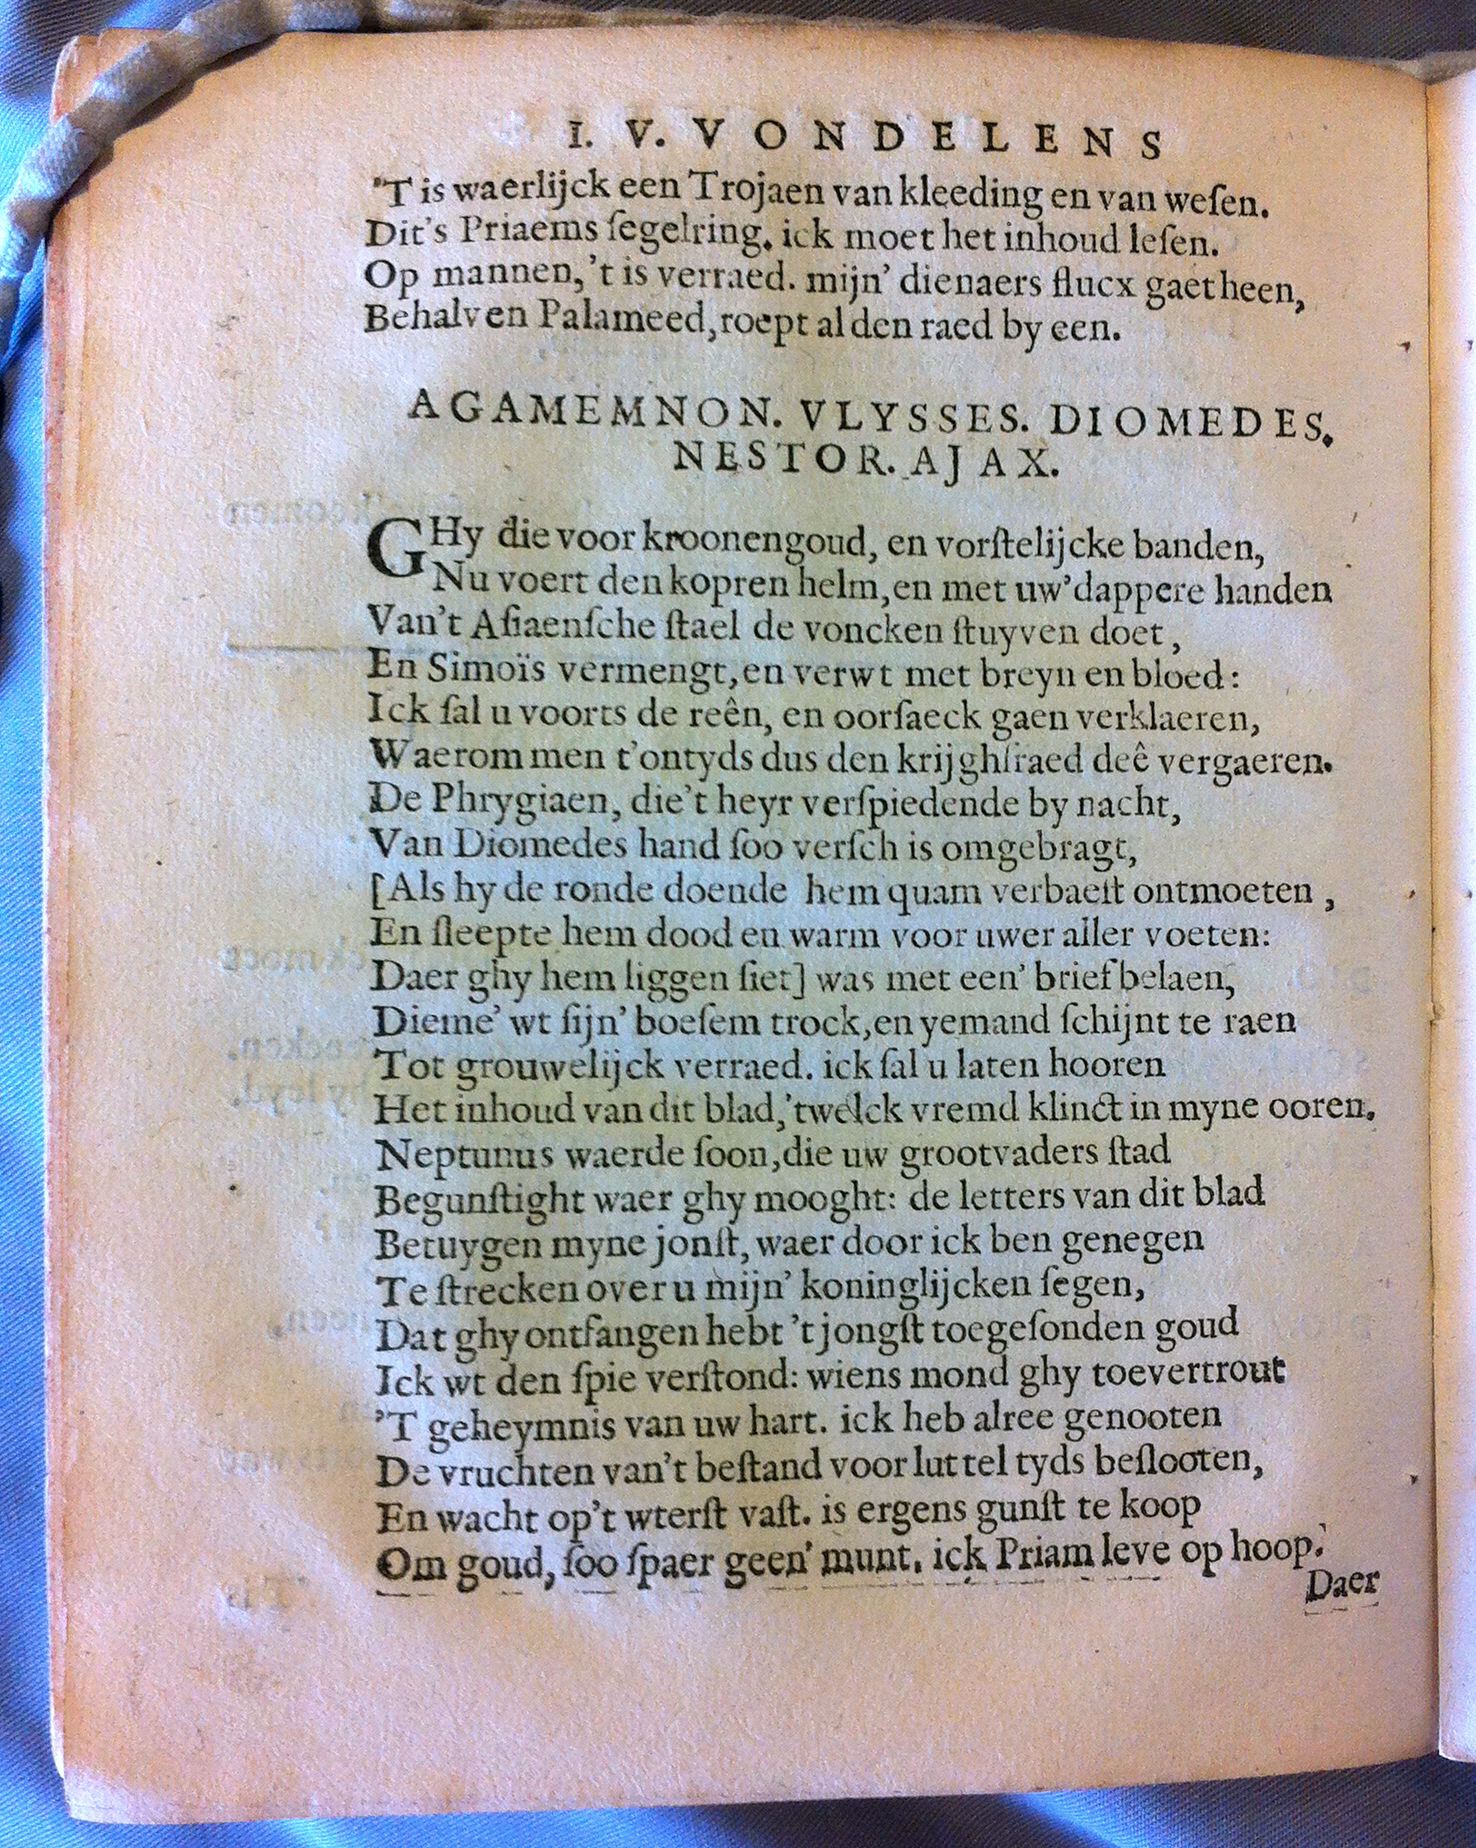 I. V. VONDELENS
'T is waerlijck een Trojaen van kleeding en van weſen.
Dit's Priaems ſegelring. ick moet het inhoud leſen.
Op mannen, 't is verraed. mijn' dienaers flucx gaet heen,
Behalven Palameed, roept al den raed by een.
AGAMEMNON. VLYSSES. DIOMEDES.
NESTOR. AJAX.
GHy die voor kroonengoud, en vorſtelijcke banden,
Nu voert den kopren helm, en met uw' dappere handen
Van't Aſiaenſche ſtael de voncken ſtuyven doet,
En Simoïs vermengt, en verwt met breyn en bloed:
Ick ſal u voorts de reên, en oorſaeck gaen verklaeren,
Waerom men t'ontyds dus den krijghſraed deê vergaeren.
De Phrygiaen, die't heyr verſpiedende by nacht,
Van Diomedes hand ſoo verſch is omgebragt,
[Als hy de ronde doende hem quam verbaeſt ontmoeten,
En ſleepte hem dood en warm voor uwer aller voeten:
Daer ghy hem liggen ſiet] was met een' brief belaen,
Dieme' wt ſijn' boeſem trock, en yemand ſchijnt te raen
Tot grouwelijck verraed. ick ſal u laten hooren
Het inhoud van dit blad, 'twelck vremd klinct in myne ooren.
Neptunus waerde ſoon, die uw grootvaders ſtad
Begunſtight waer ghy mooght: de letters van dit blad
Betuygen myne jonſt, waer door ick ben genegen
Te ſtrecken over u mijn' koninglijcken ſegen,
Dat ghy ontfangen hebt 't jongſt toegeſonden goud
Ick wt den ſpie verſtond: wiens mond ghy toevertrout
'T geheymnis van uw hart. ick heb alree genooten
De vruchten van't beſtand voor luttel tyds beſlooten,
En wacht op't wterſt vaſt. is ergens gunſt te koop
Om goud, ſoo ſpaer geen' munt. ick Priam leve op hoop.
Daer